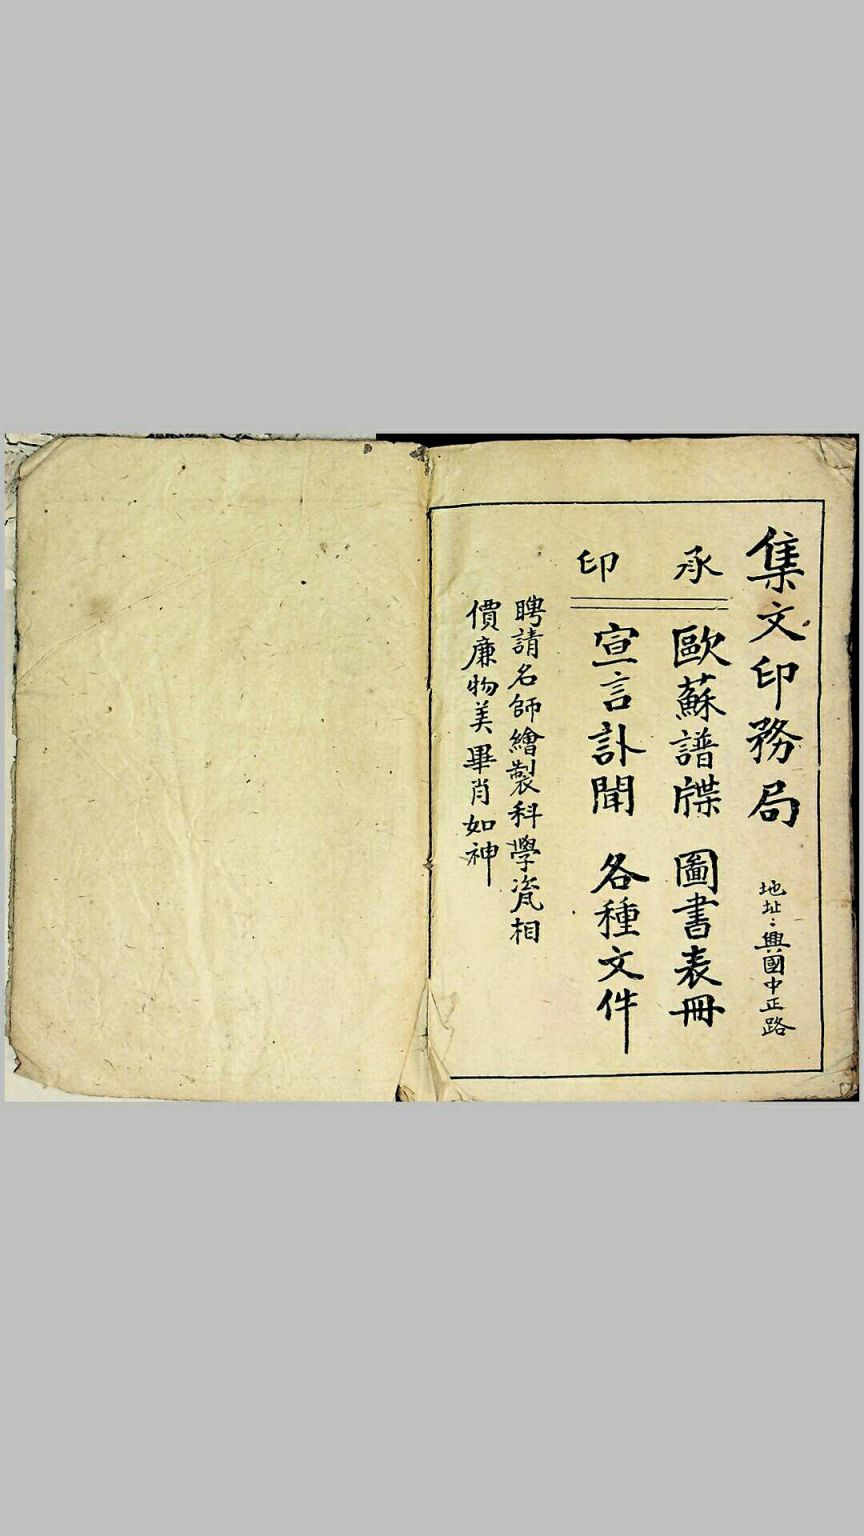 集文印務局
地址：興國中正路
承印
歐蘇譜牒 圖書表冊
宣言訃聞 各種文件
聘請名師繪製科學瓷相
價廉物美畢肖如神